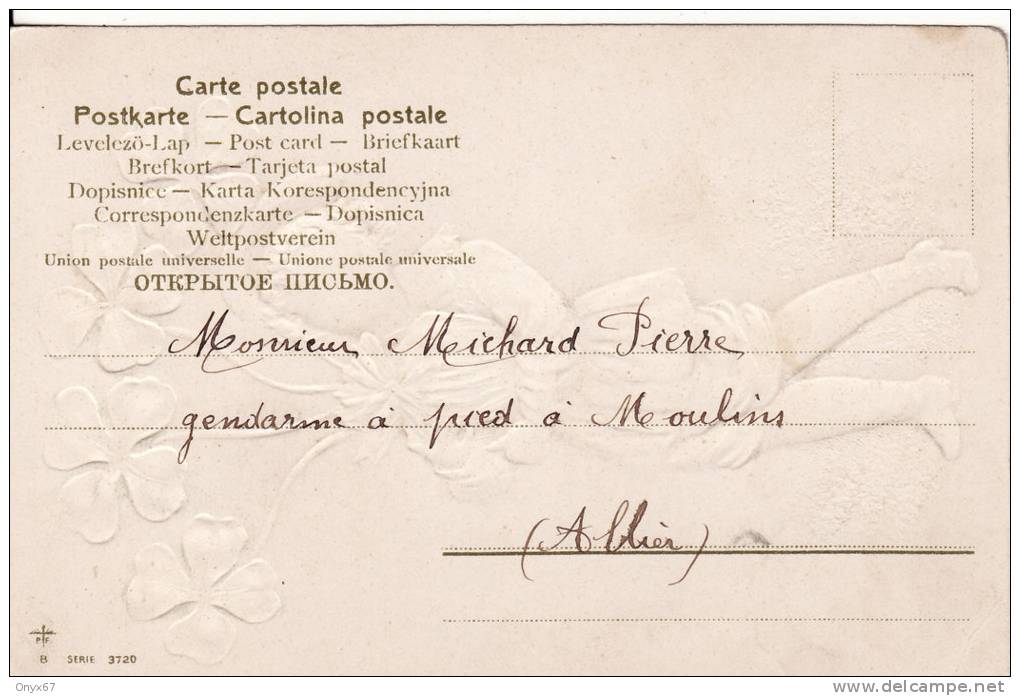 Carte postale
Postkarte — Cartolina postale
Levelező-Lap — Post card — Briefkaart
Brefkort — Tarjeta postal
Dopisnice — Karta Korespondencyjna
Correspondenzkarte — Dopisnica
Weltpostverein
Union postale universelle — Unione postale universale
ОТКРЫТОЕ ПИСЬМО.
Monsieur Michard Pierre
gendarme à pied à Moulins
(Allier)
PF
B SERIE 3720
Onyx67
www.delcampe.net